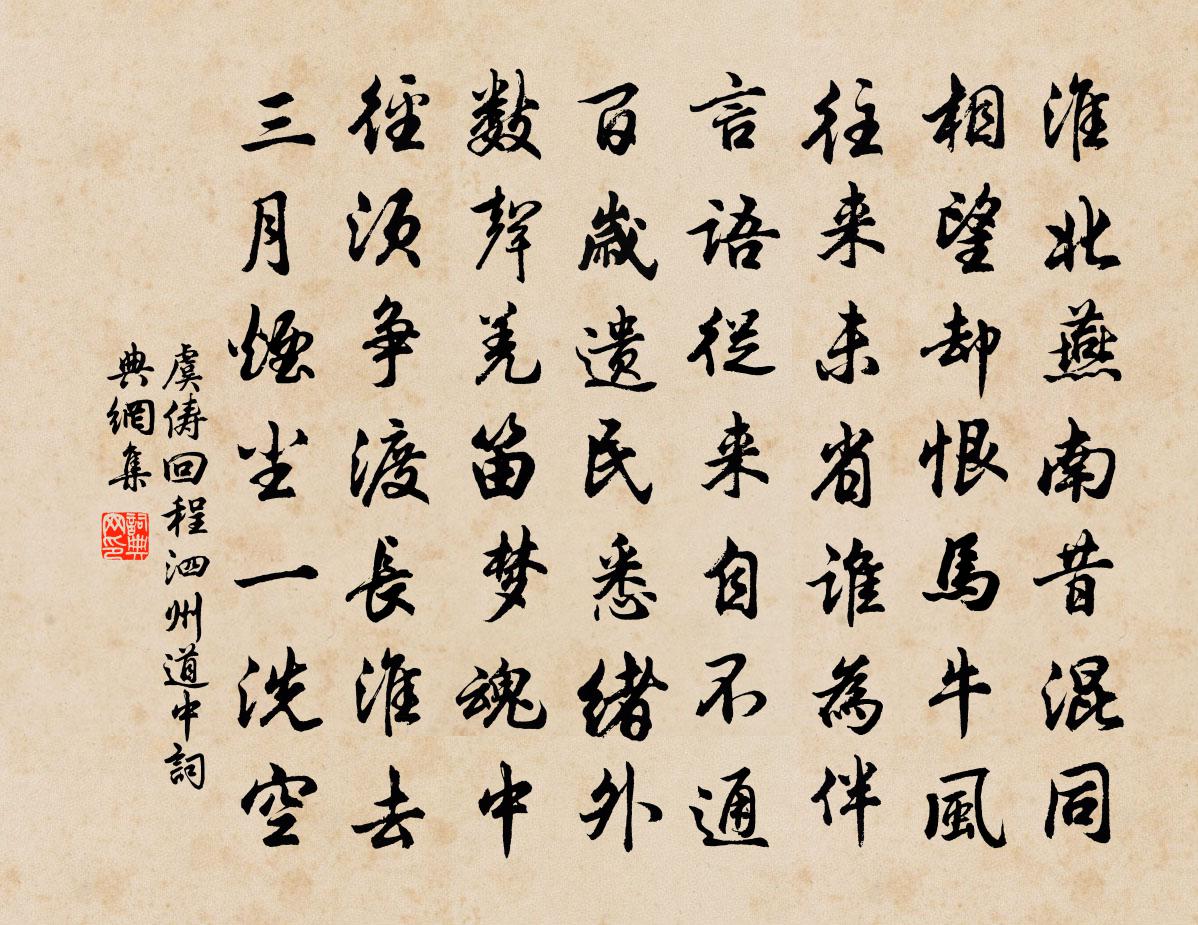 淮北燕南昔混同
相望却恨馬牛風
往来未省誰為伴
言語從来自不通
百歲遺民悉緒外
數聲羌笛梦魂中
徑須争渡長淮去
三月煙尘一洗空
虞儔回程泗州道中詞
典網集
詞典
网印